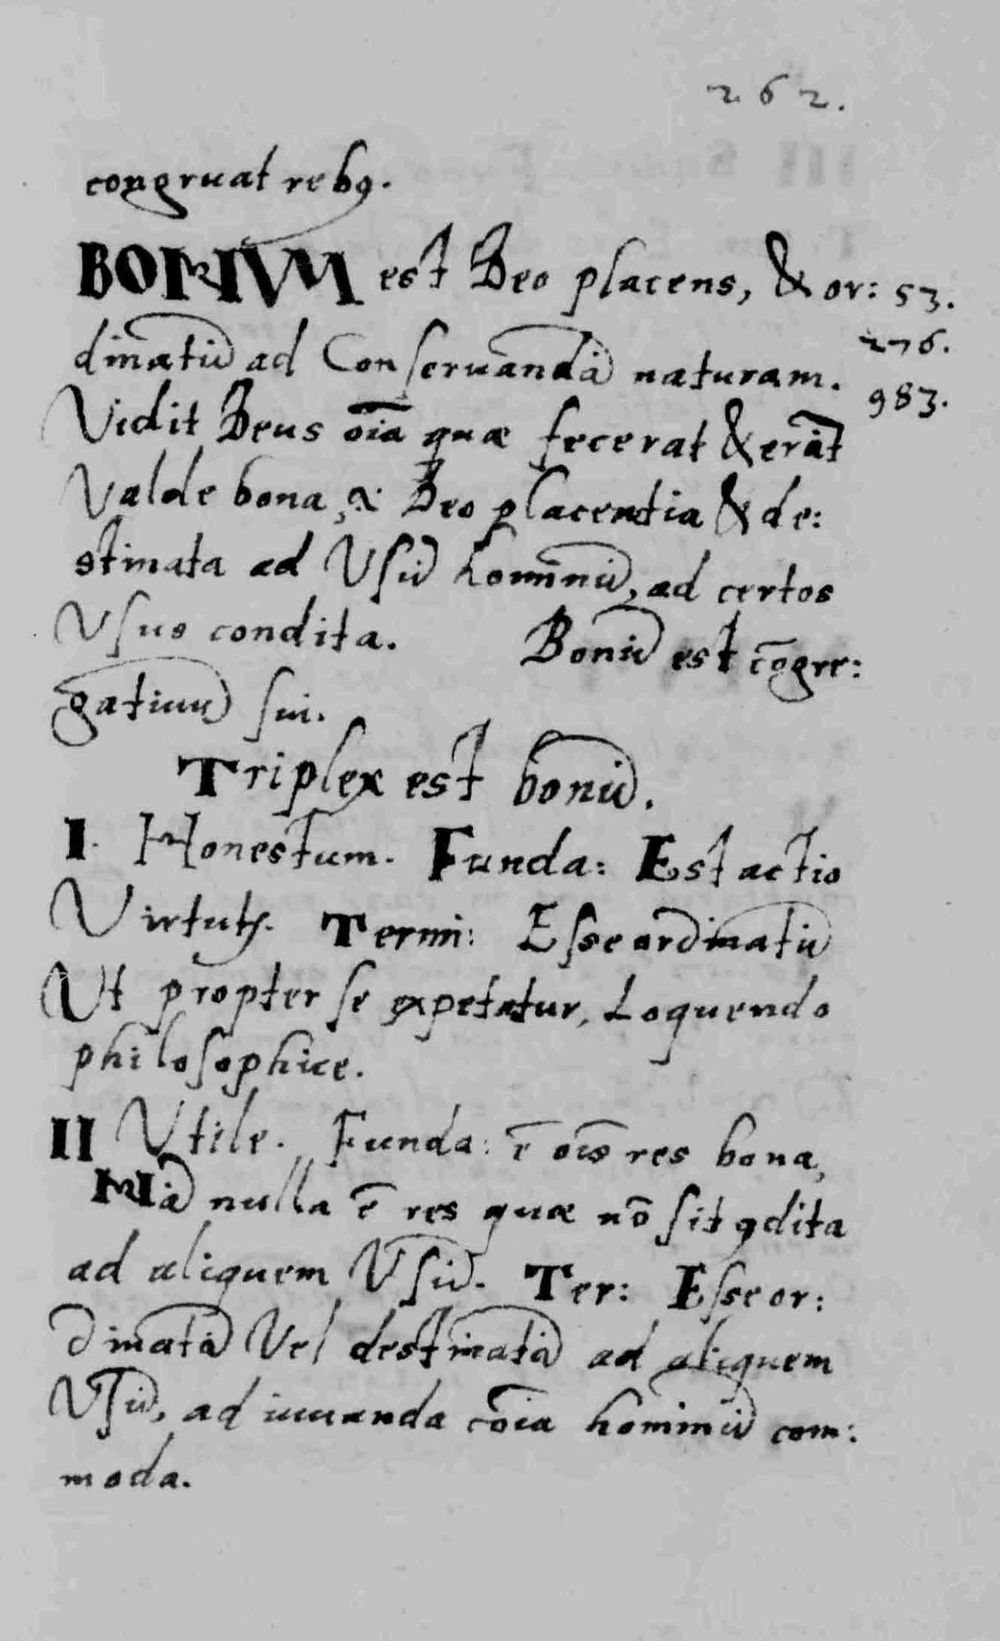 262.
congruat rebꝯ.
BONVM est Deo placens, & or: 53.
dinatū ad Conseruandā naturam. 276.
Vidit Deus oīa quæ fecerat & erāt 983.
Valde bona, &: Deo placentia & de:
stinata ad Vsū hominū, ad certos
Vsus condita. Bonū est cōgre:
gatiuū sui.
Triplex est bonū.
I. Honestum. Funda: Est actio
Virtutis. Termi: Esse ordinatū
Vt propter se expetatur, Loquendo
philosophice.
II Vtile. Funda: ē oīs res bona,
Nā nulla ē res quæ nō sit ꝯdita
ad aliquem Vsū. Ter: Esse or:
dinatā Vel destinatā ad aliquem
Vsū, ad iuuanda cōia hominū com:
moda.